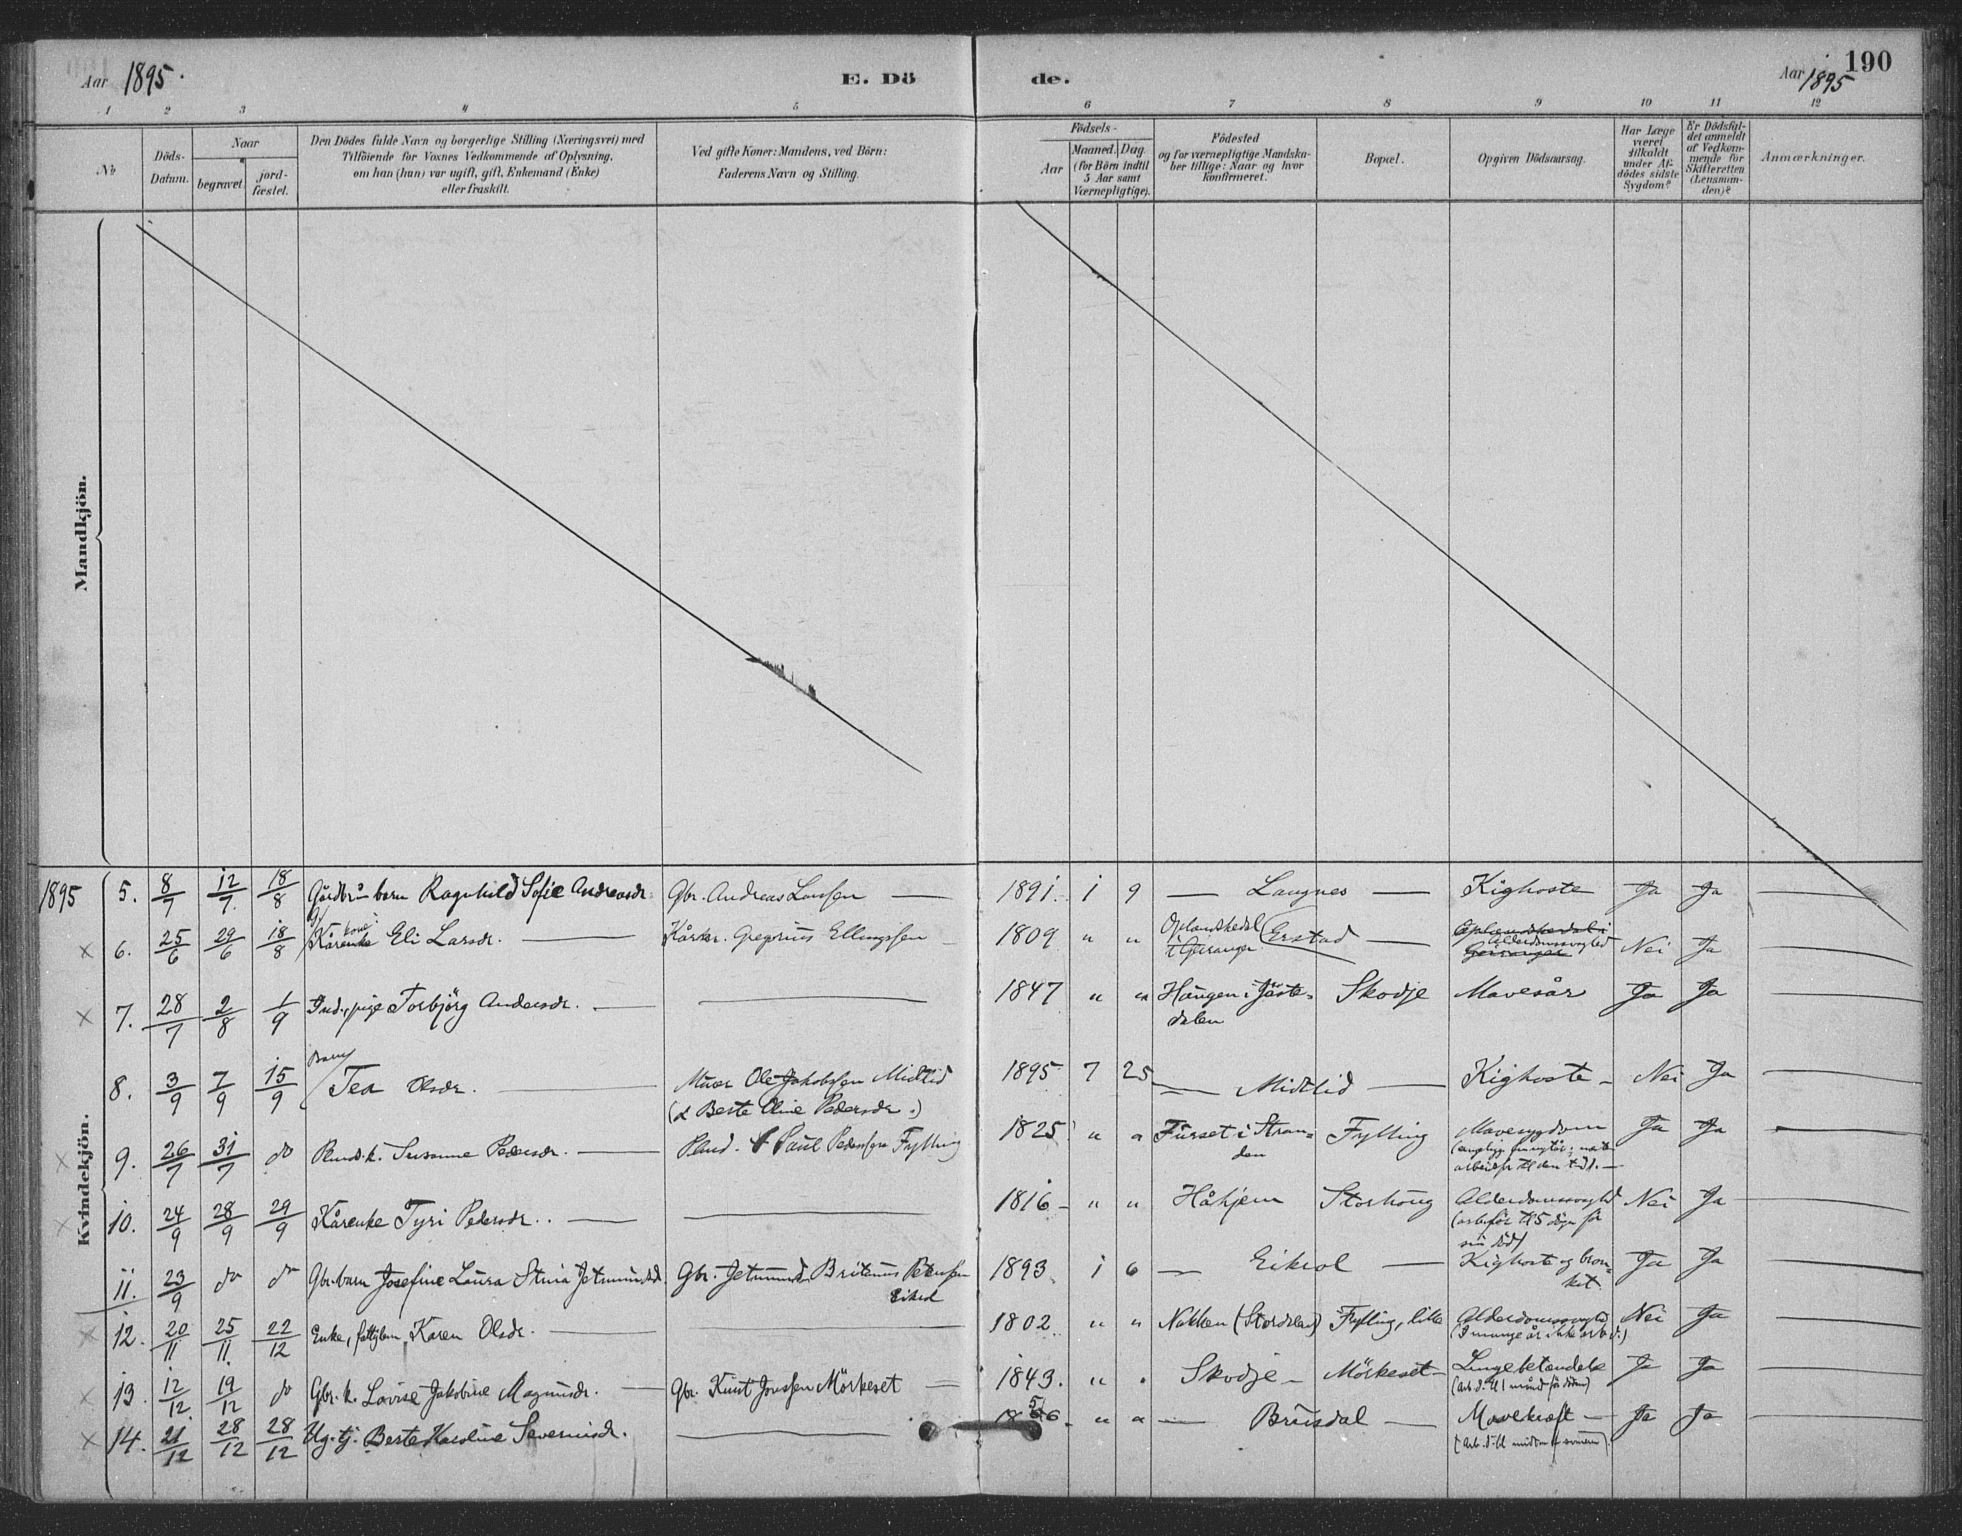 Aar 1895.
E. Dö
de.
Aar 1895
190
1 2 3 4 5 6 7 8 9 10 11 12
No
Döds-
Datum.
Naar
begravet.
jord-
fæstet.
Den Dödes fulde Navn og borgerlige Stilling (Næringsvei) med
Tilföiende for Voxnes Vedkommende af Oplysning,
om han (hun) var ugift, gift, Enkemand (Enke)
eller fraskilt.
Ved gifte Koner: Mandens, ved Börn:
Faderens Navn og Stilling.
Födsels-
Aar
Maaned. Dag.
(for Börn indtil
5 Aar samt
Værnepligtige).
Födested
og for værnepligtige Mandska-
ber tillige: Naar og hvor
konfirmeret.
Bopæl.
Opgiven Dödsaarsag.
Har Læge
været
tilkaldt
under Af-
dödes sidste
Sygdom?
Er Dödsfal-
det anmeldt
af Vedkom-
mende for
Skifteretten
(Lensman-
den)?
Anmærkninger.
Mandkjön.
Kvindekjön.
1895 5. 8/7 12/7. 18/8 Gårdbr. barn Ragnhild Sofie Andreasdr. Gbr. Andreas Larssen 1891. 1 9 — Langnes — Kighoste Ja Ja
× 6. 25/6 29/6 18/8 Kone Eli Larsdr. Kårkr. Gregrius Ellingssen 1809 " " Oplandskedal i Geiranger Erstad — Alderdomssvaghed Nei Ja
× 7. 28/7 2/8 1/9 Ind., pige Torbjörg Andersdr. — 1847 " " Haugen i Jöste-
dalen Skodje Mavesår Ja Ja
8. 3/9 7/9 15/9 Barn Tea Olsdr. Murer Ole Jakobssen Midtlid
(& Berte Oline Pedersdr.) 1895 7 25 — Midtlid — Kighoste — Nei Ja
× 9. 26/7 31/7 do Susanne Pedersdr. — Paul Pederssen Fylling 1825 " " Furset i Stran-
den Fylling Mavesygdom Ja Ja
× 10. 24/9 28/9 29/9 Kårenke Tyri Pedersdr. — 1816 — " " Håhjem Storhaug Alderdomssvaghed
sin död) Nei Ja
11. 23/9 do do Gbr. barn Josefine Laura Stina Jetmundsd. Gbr. Jetmund Britenus Peterssen
Eikrol 1893 1 6 — Eikrol — Kighoste og bron-
kit. Ja Ja
× 12. 20/11 25/11. 22/12 Enke, fattiglem Karen Olsdr. — 1802 " " Nakken (Stordalen) Fylling, lille Alderdomssvaghed
(I mange år ikke arb.d.) Nei Ja
× 13. 12/12 19/12 do Gbr. k. Lovise Jakobine Magnusdr. — Gbr. Knut Jonssen Mörkeset — 1843. " " Skodje — Mörkeset — Lungebetændelse Ja Ja
× 14. 21/12 28/12 28/12 Ug. tj. Berte Karoline Severinsdr. — " " — Brusdal — Mavekræft — Ja Ja